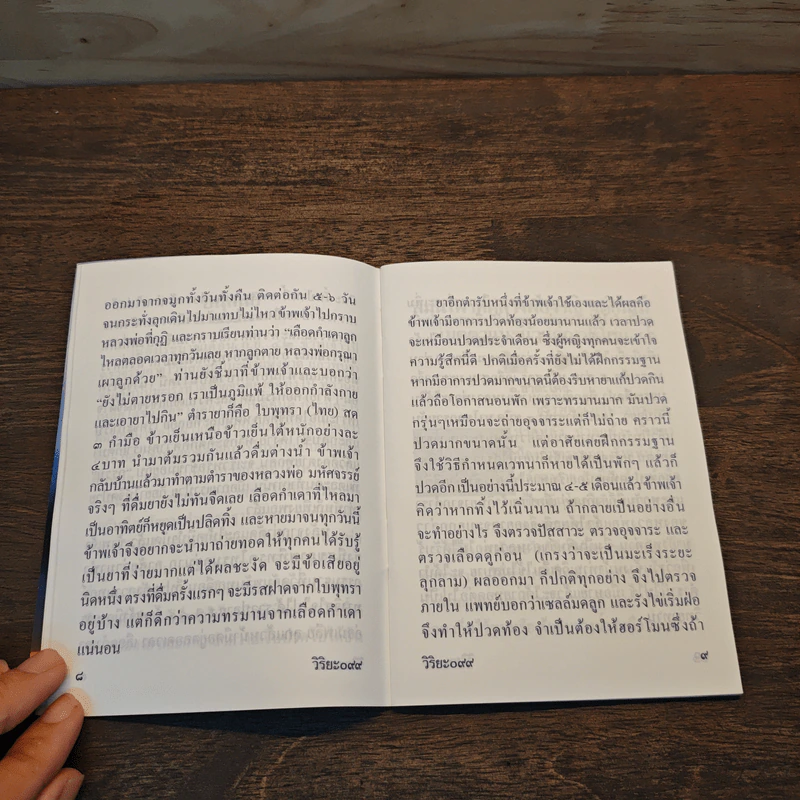 ออกมาจากจมูกทั้งวันทั้งคืน ติดต่อกัน ๕-๖ วัน
จนกระทั่งลุกเดินไปมาแทบไม่ไหว ข้าพเจ้าไปกราบ
หลวงพ่อที่กุฏิ และกราบเรียนท่านว่า “เลือดกำเดาลูก
ไหลตลอดเวลาทุกวันเลย หากลูกตาย หลวงพ่อกรุณา
เผาลูกด้วย” ท่านยังชี้มาที่ข้าพเจ้าและบอกว่า
“ยังไม่ตายหรอก เราเป็นภูมิแพ้ ให้ออกกำลังกาย
และเอายาไปกิน” ตำรายาก็คือ ใบพุทรา (ไทย) สด
๓ กำมือ ข้าวเย็นเหนือข้าวเย็นใต้หนักอย่างละ
๔บาท นำมาต้มรวมกันแล้วดื่มต่างน้ำ ข้าพเจ้า
กลับบ้านแล้วมาทำตามตำราของหลวงพ่อ มหัศจรรย์
จริงๆ ที่ดื่มยายังไม่ทันจืดเลย เลือดกำเดาที่ไหลมา
เป็นอาทิตย์ก็หยุดเป็นปลิดทิ้ง และหายมาจนทุกวันนี้
ข้าพเจ้าจึงอยากจะนำมาถ่ายทอดให้ทุกคนได้รับรู้
เป็นยาที่ง่ายมากแต่ได้ผลชะงัด จะมีข้อเสียอยู่
นิดหนึ่ง ตรงที่ดื่มครั้งแรกๆ จะมีรสฝาดจากใบพุทรา
อยู่บ้าง แต่ก็ดีกว่าความทรมานจากเลือดกำเดา
แน่นอน
๘
วิริยะ๐๙๙
ยาอีกตำรับหนึ่งที่ข้าพเจ้าใช้เองและได้ผลคือ
ข้าพเจ้ามีอาการปวดท้องน้อยมานานแล้ว เวลาปวด
จะเหมือนปวดประจำเดือน ซึ่งผู้หญิงทุกคนจะเข้าใจ
ความรู้สึกนี้ดี ปกติเมื่อครั้งที่ยังไม่ได้ฝึกกรรมฐาน
หากมีอาการปวดมากขนาดนี้ต้องรีบหายาแก้ปวดกิน
แล้วถือโอกาสนอนพัก เพราะทรมานมาก มันปวด
กรุ่นๆเหมือนจะถ่ายอุจจาระแต่ก็ไม่ถ่าย คราวนี้
ปวดมากขนาดนั้น แต่อาศัยเคยฝึกกรรมฐาน
จึงใช้วิธีกำหนดเวทนาก็หายได้เป็นพักๆ แล้วก็
ปวดอีก เป็นอย่างนี้ประมาณ ๔-๕ เดือนแล้ว ข้าพเจ้า
คิดว่าหากทิ้งไว้เนิ่นนาน ถ้ากลายเป็นอย่างอื่น
จะทำอย่างไร จึงตรวจปัสสาวะ ตรวจอุจจาระ และ
ตรวจเลือดดูก่อน (เกรงว่าจะเป็นมะเร็งระยะ
ลุกลาม) ผลออกมา ก็ปกติทุกอย่าง จึงไปตรวจ
ภายใน แพทย์บอกว่าเซลล์มดลูก และรังไข่เริ่มฝ่อ
จึงทำให้ปวดท้อง จำเป็นต้องให้ฮอร์โมนซึ่งถ้า
วิริยะ๐๙๙
๙